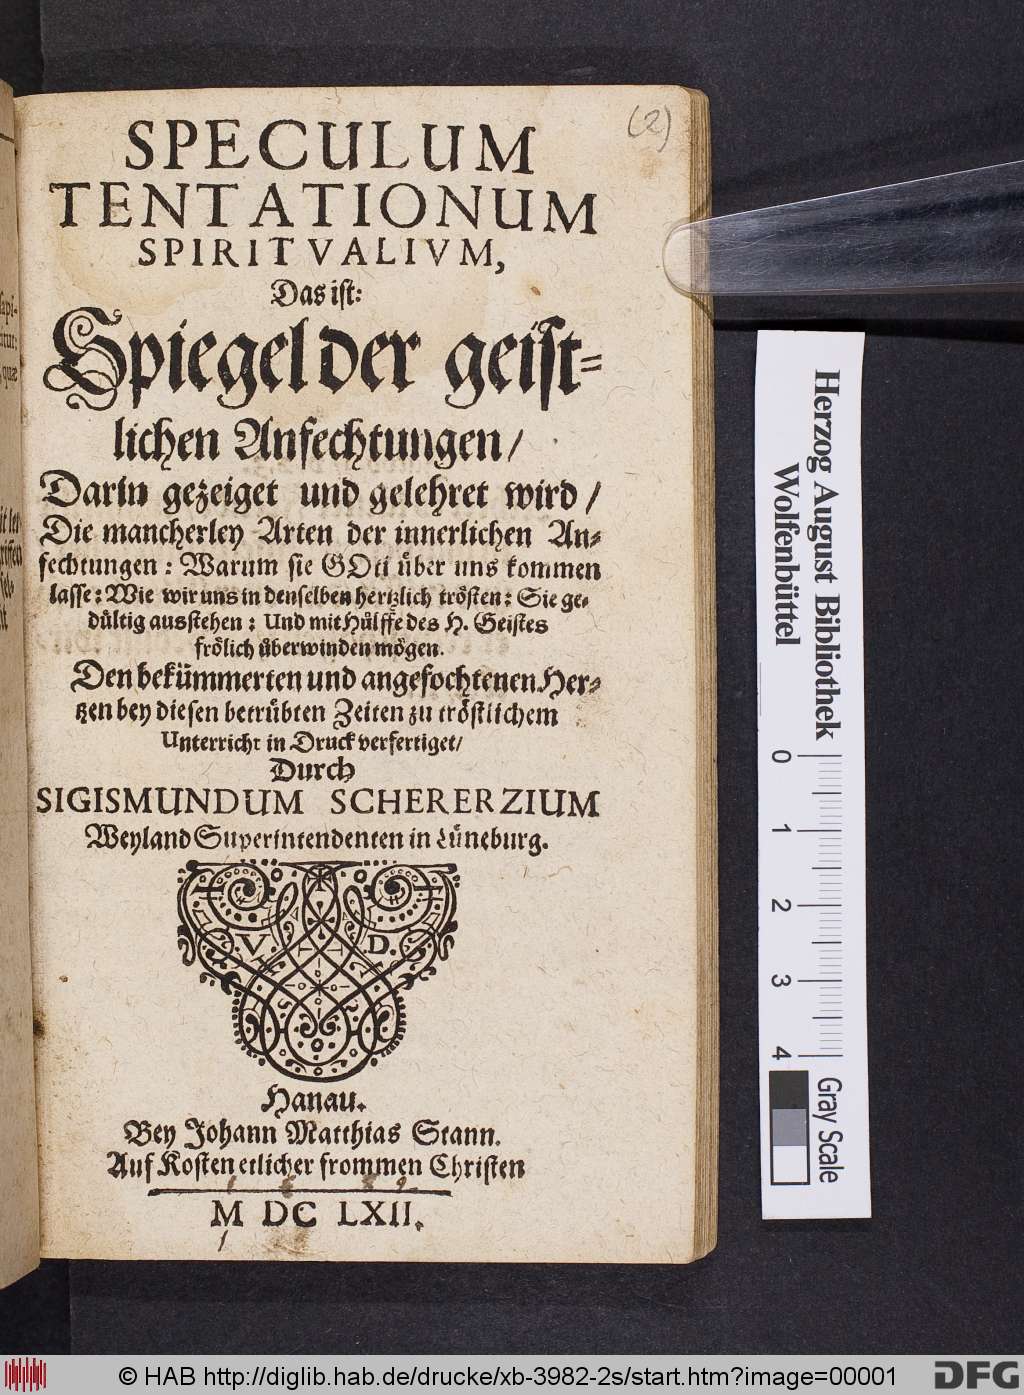 (2)
SPECULUM
TENTATIONUM
SPIRITVALIVM,
Das ist:
Spiegel der geist-
lichen Anfechtungen/
Darin gezeiget und gelehret wird/
Die mancherley Arten der innerlichen An-
fechtungen: Warum sie GOtt über uns kommen
lasse: Wie wir uns in denselben hertzlich trösten: Sie ge-
dültig ausstehen: Und mit Hülffe des H. Geistes
frölich überwinden mögen.
Den bekümmerten und angefochtenen Her-
tzen bey diesen betrübten Zeiten zu tröstlichem
Unterricht in Druck verfertiget/
Durch
SIGISMUNDUM SCHERERZIUM
Weyland Superintendenten in Lüneburg.
V. D.
Hanau.
Bey Johann Matthias Stann.
Auf Kosten etlicher frommen Christen
M DC LXII.
Herzog August Bibliothek
Wolfenbüttel
0 1 2 3 4
Gray Scale
© HAB http://diglib.hab.de/drucke/xb-3982-2s/start.htm?image=00001
DFG